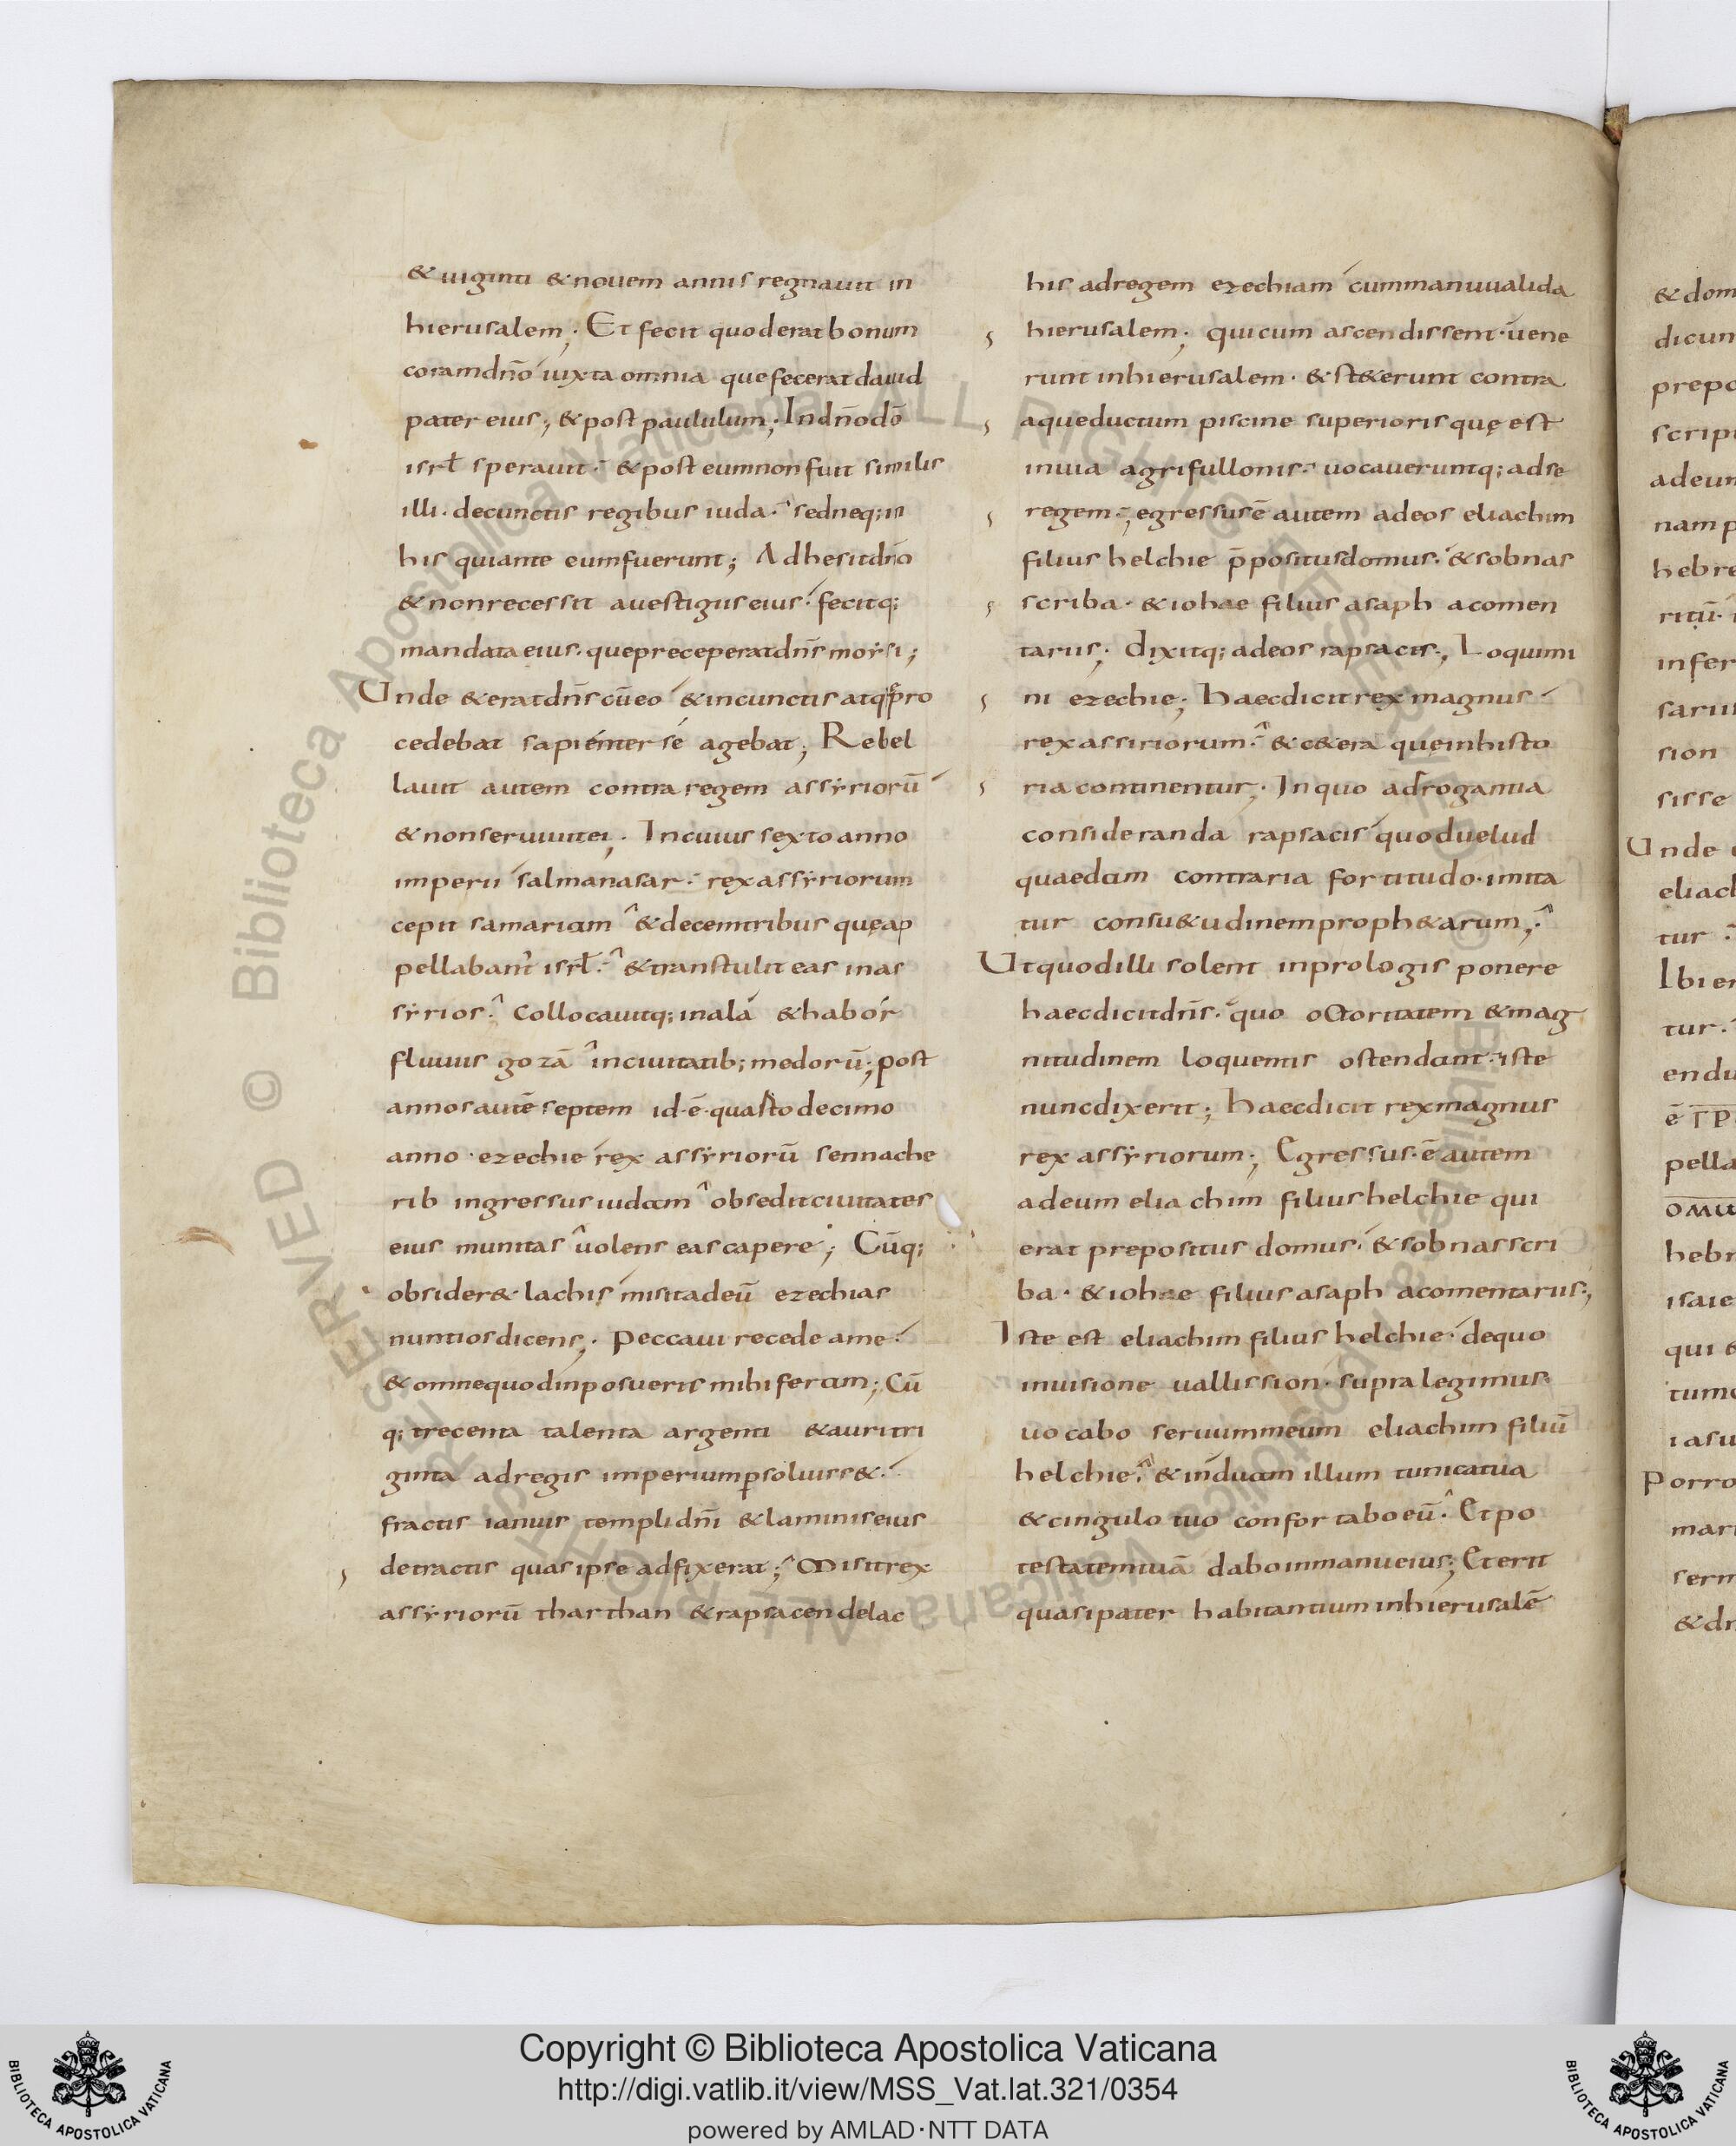 & uiginti & nouem annis regnauit in
hierusalem; Et fecit quod erat bonum
coram dño iuxta omnia que fecerat dauid
pater eius; & post paululum; In dño dõ
isrł sperauit. & post eum non fuit similis
illi. de cunctis regibus iuda. sed neq; in
his qui ante eum fuerunt; Adhesit dño
& non recessit a uestigiis eius. fecitq;
mandata eius. que preceperat dñs moÿsi;
Unde & erat dñs cũ eo & in cunctis atq; pro
cedebat sapienter se agebat; Rebel
lauit autem contra regem assÿriorũ
& non seruiuit ei; In cuius sexto anno
imperii salmanasar. rex assÿriorum
cepit samariam & decem tribus quę ap
pellabant isrł. & transtulit eas in as
sÿrios. Collocauitq; in ala & habor
fluuius gozã in ciuitatib; medorũ; post
annos autẽ septem id.ẽ. quarto decimo
anno. ezechie rex assÿriorũ sennache
rib ingressus iudam obsedit ciuitates
eius munitas uolens eas capere; Cũq;
obsider& lachis misit ad eũ ezechias
nuntios dicens; Peccaui recede a me.
& omne quod inposueris mihi feram; Cũ
q; trecenta talenta argenti & auri tri
ginta ad regis imperium persoluiss&.
fractis ianuis templi dñi & laminis eius
detractis quas ipse adfixerat; Misit rex
assÿriorũ tharthan & rapsacen de lac
his ad regem ezechiam cum manu ualida
hierusalem; qui cum ascendissent. uene
runt in hierusalem. & st&erunt contra
aqueductum piscine superioris quę est
in uia agri fullonis. uocaueruntq; ad se
regem; egressus ẽ autem ad eos eliachim
filius helchie p̄positus domus. & sobnas
scriba. & iohae filius asaph a comen
tariis; dixitq; ad eos rapsacis; Loquimi
ni ezechie; Haec dicit rex magnus
rex assiriorum. & c&era quę in histo
ria continentur; In quo adrogantia
consideranda rapsacis quod uelud
quaedam contraria fortitudo. imita
tur consu&udinem proph&arum;
Ut quod illi solent in prologis ponere
haec dicit dñs. quo octoritatem & mag
nitudinem loquentis ostendant. iste
nunc dixerit; Haec dicit rex magnus
rex assÿriorum; Egressus.ẽ autem
ad eum eliachim filius helchie qui
erat prepositus domus. & sobnas scri
ba. & iohae filius asaph a comentariis;
Iste est eliachim filius helchie. de quo
in uisione uallis sion. supra legimus.
uocabo seruum meum eliachim filiũ
helchie. & induam illum tunica tua
& cingulo tuo confortabo eũ. Et po
testatem tuã dabo in manu eius; Et erit
quasi pater habitantium in hierusalẽ
& dom
dicun
prepo
script
ad eum
nam p
hebre
ritũ.
infer
sariis
sion
sisse
Unde
eliach
tur
Ibi er
tur.
endu
pella
hebr
isaie
qui &
tumo
iasu
Porro
mari
serm
Copyright © Biblioteca Apostolica Vaticana
http://digi.vatlib.it/view/MSS_Vat.lat.321/0354
powered by AMLAD·NTT DATA
BIBLIOTECA APOSTOLICA VATICANA
BIBLIOTECA APOSTOLICA VATICANA